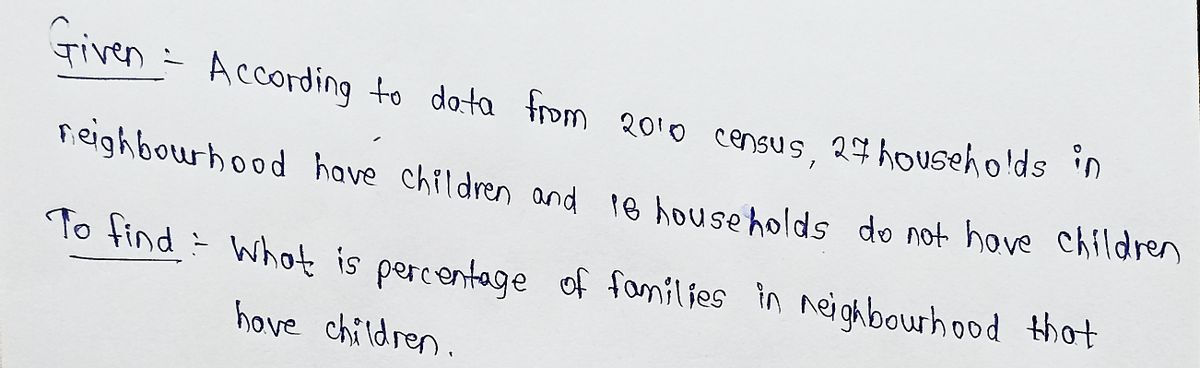 Given :- According to data from 2010 census, 27 households in
neighbourhood have children and 18 households do not have children
To find :- What is percentage of families in neighbourhood that
have children.